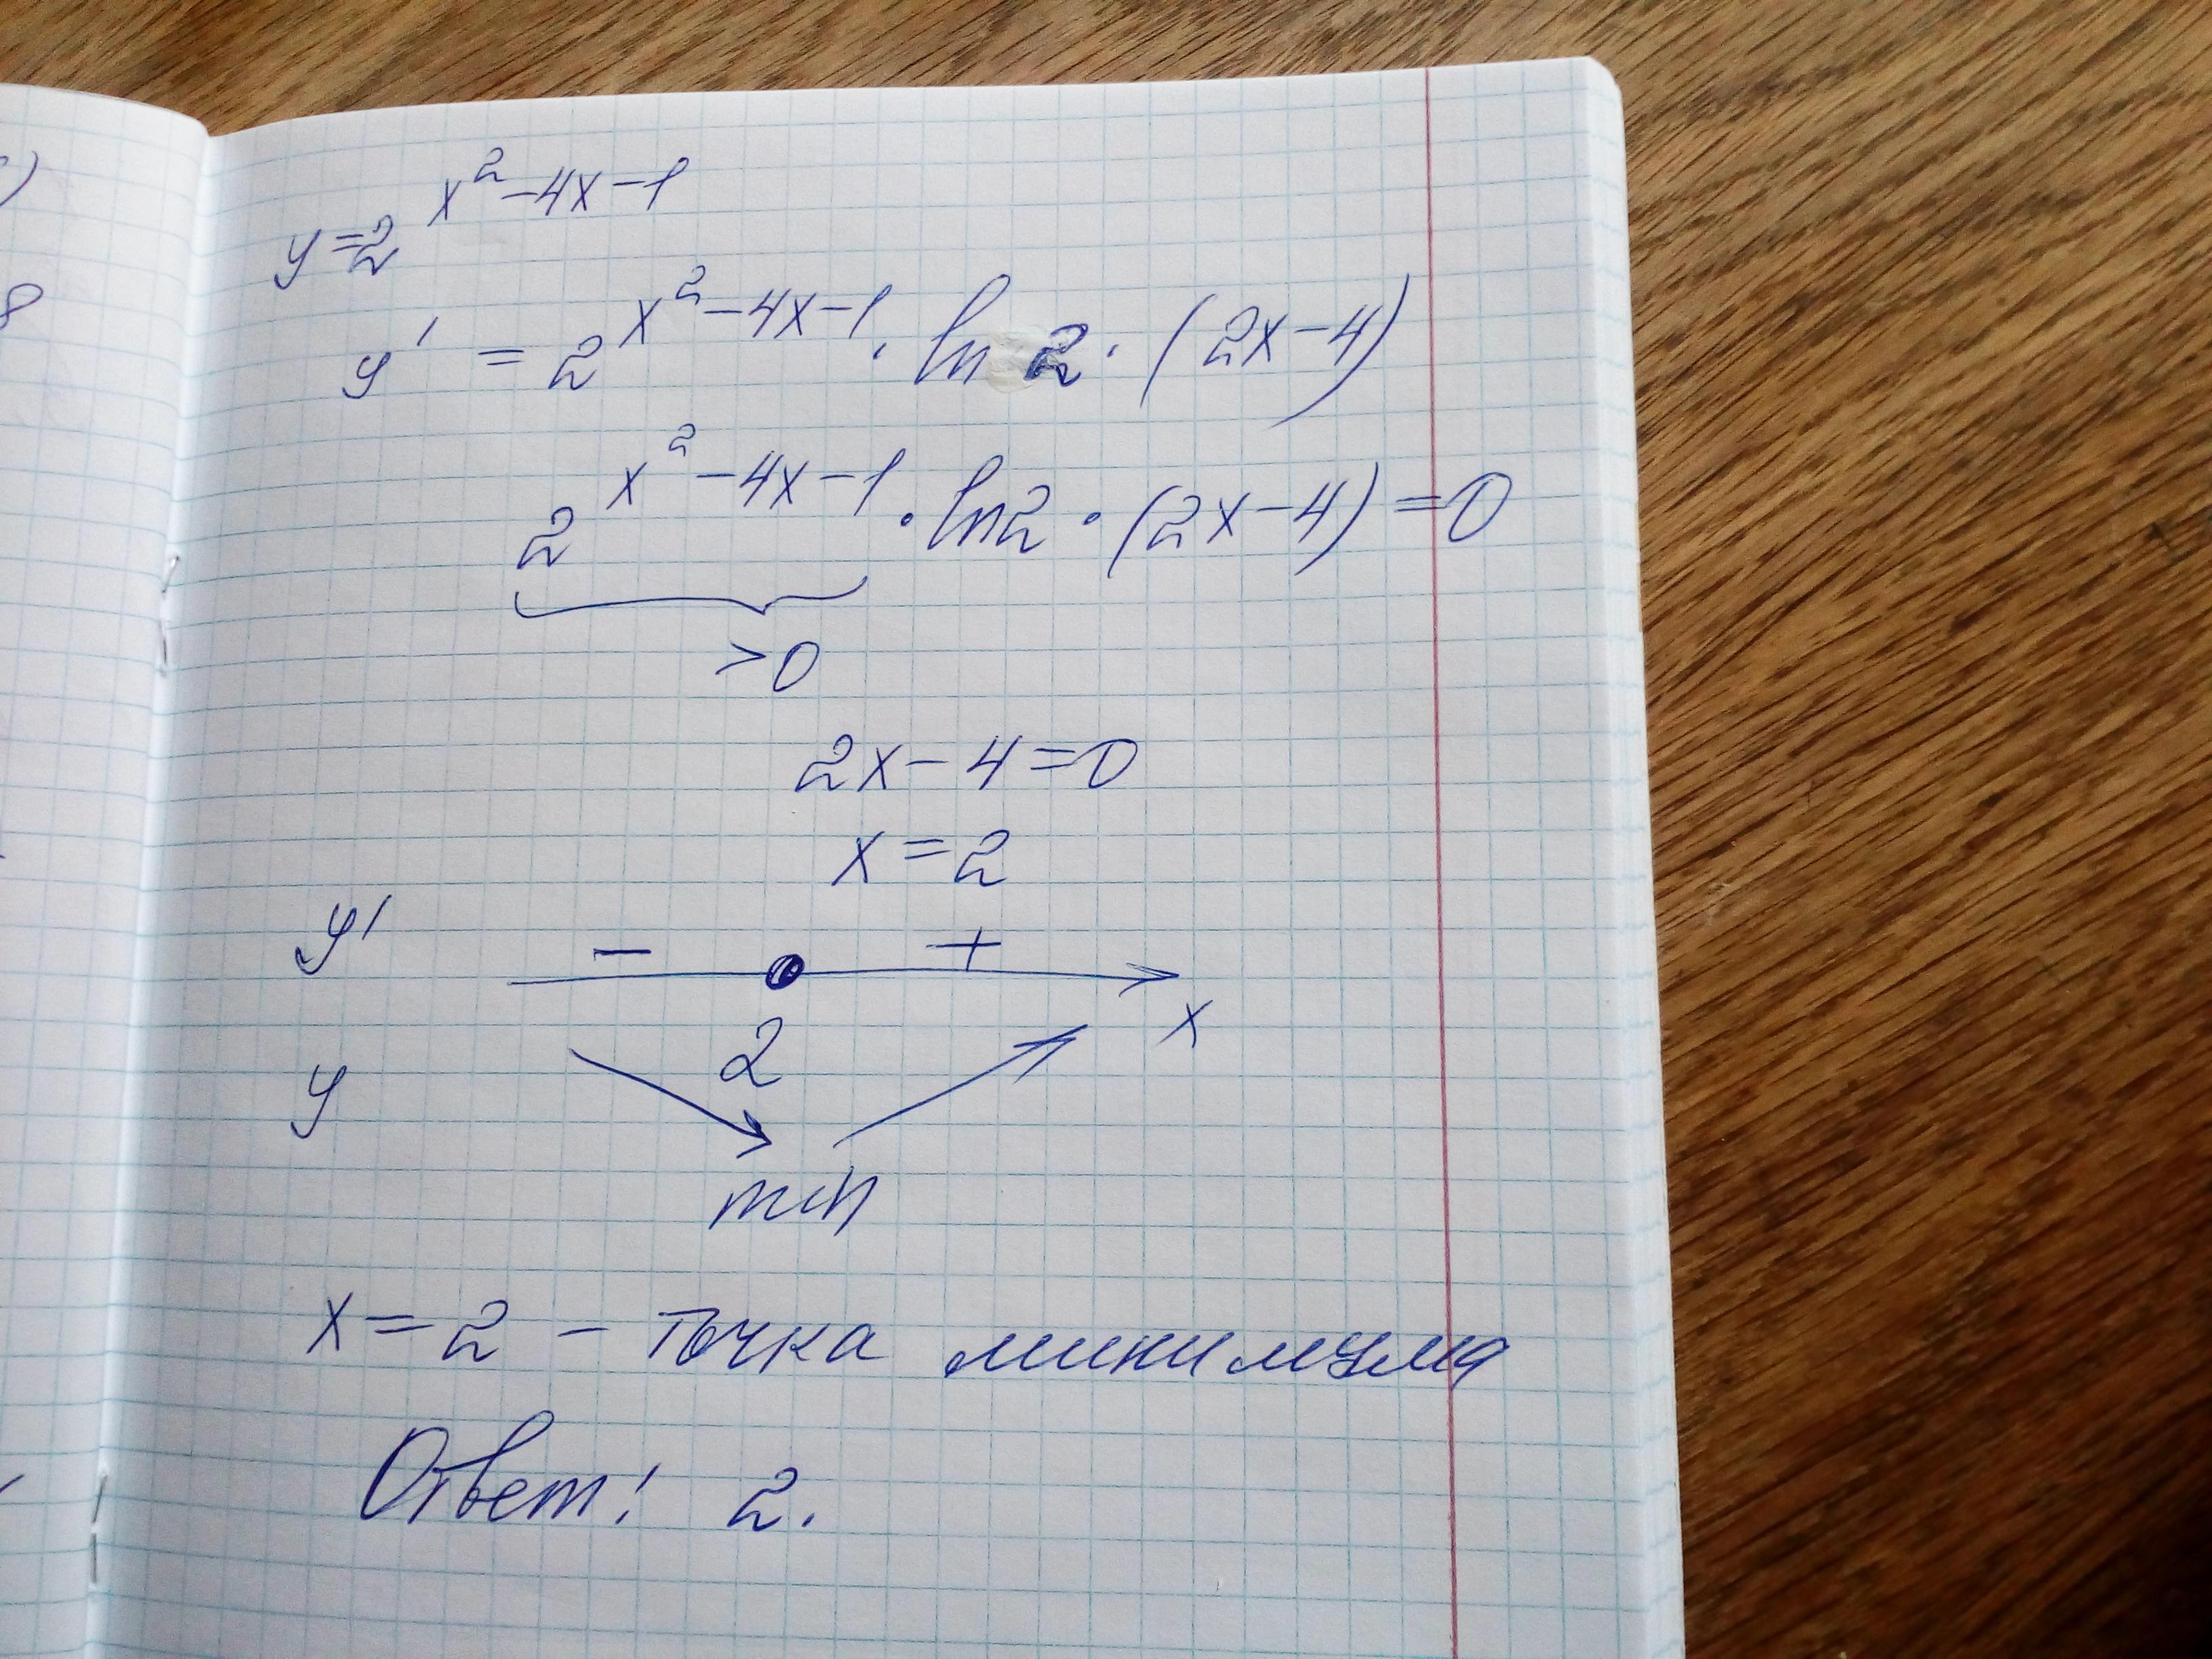 y=2^{x^2-4x-1}
y' = 2^{x^2-4x-1} · ln 2 · (2x-4)
2^{x^2-4x-1} · ln2 · (2x-4) = 0
>0
2x-4=0
x=2
y' - +
2 x
y
min
x=2 - точка минимума
Ответ: 2.
8